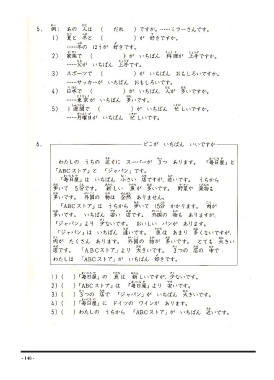 5. 例： あの 人は （ だれ ）ですか。……ミラーさんです。
1) 夏と 冬と （ ）が 好きですか。
……冬の ほうが 好きです。
2) 家族で （ ）が いちばん 料理が 上手ですか。
……父が いちばん 上手です。
3) スポーツで （ ）が いちばん おもしろいですか。
……サッカーが いちばん おもしろいです。
4) 日本で （ ）が いちばん 人が 多いですか。
……東京が いちばん 多いです。
5) 1週間で （ ）が いちばん 忙しいですか。
……月曜日が いちばん 忙しいです。
6.
どこが いちばん いいですか
わたしの うちの 近くに スーパーが 3つ あります。 「毎日屋」と
「ABCストア」と 「ジャパン」です。
「毎日屋」は いちばん 小さい 店ですが、近いです。 うちから
歩いて 5分です。 新しい 魚が 多いです。 野菜や 果物も
多いです。 外国の 物は 全然 ありません。
「ABCストア」は うちから 歩いて 15分 かかります。 肉が
多いです。 いちばん 安い 店です。 外国の 物も ありますが、
「ジャパン」より 少ないです。 おいしい パンが あります。
「ジャパン」は いちばん 遠いです。 魚は あまり 多くないですが、
肉が たくさん あります。 外国の 物が 多いです。 とても 大きい
店です。 「ABCストア」より 大きいです。 3つの 店の 中で
わたしは 「ABCストア」が いちばん 好きです。
1) （ ）「毎日屋」の 魚は 新しいですが、少ないです。
2) （ ）「ABCストア」は 「毎日屋」より 安いです。
3) （ ）3つの 店で 「ジャパン」が いちばん 大きいです。
4) （ ）「毎日屋」に ドイツの ワインが あります。
5) （ ）わたしは 「ABCストア」が いちばん 近いです。
- 146 -